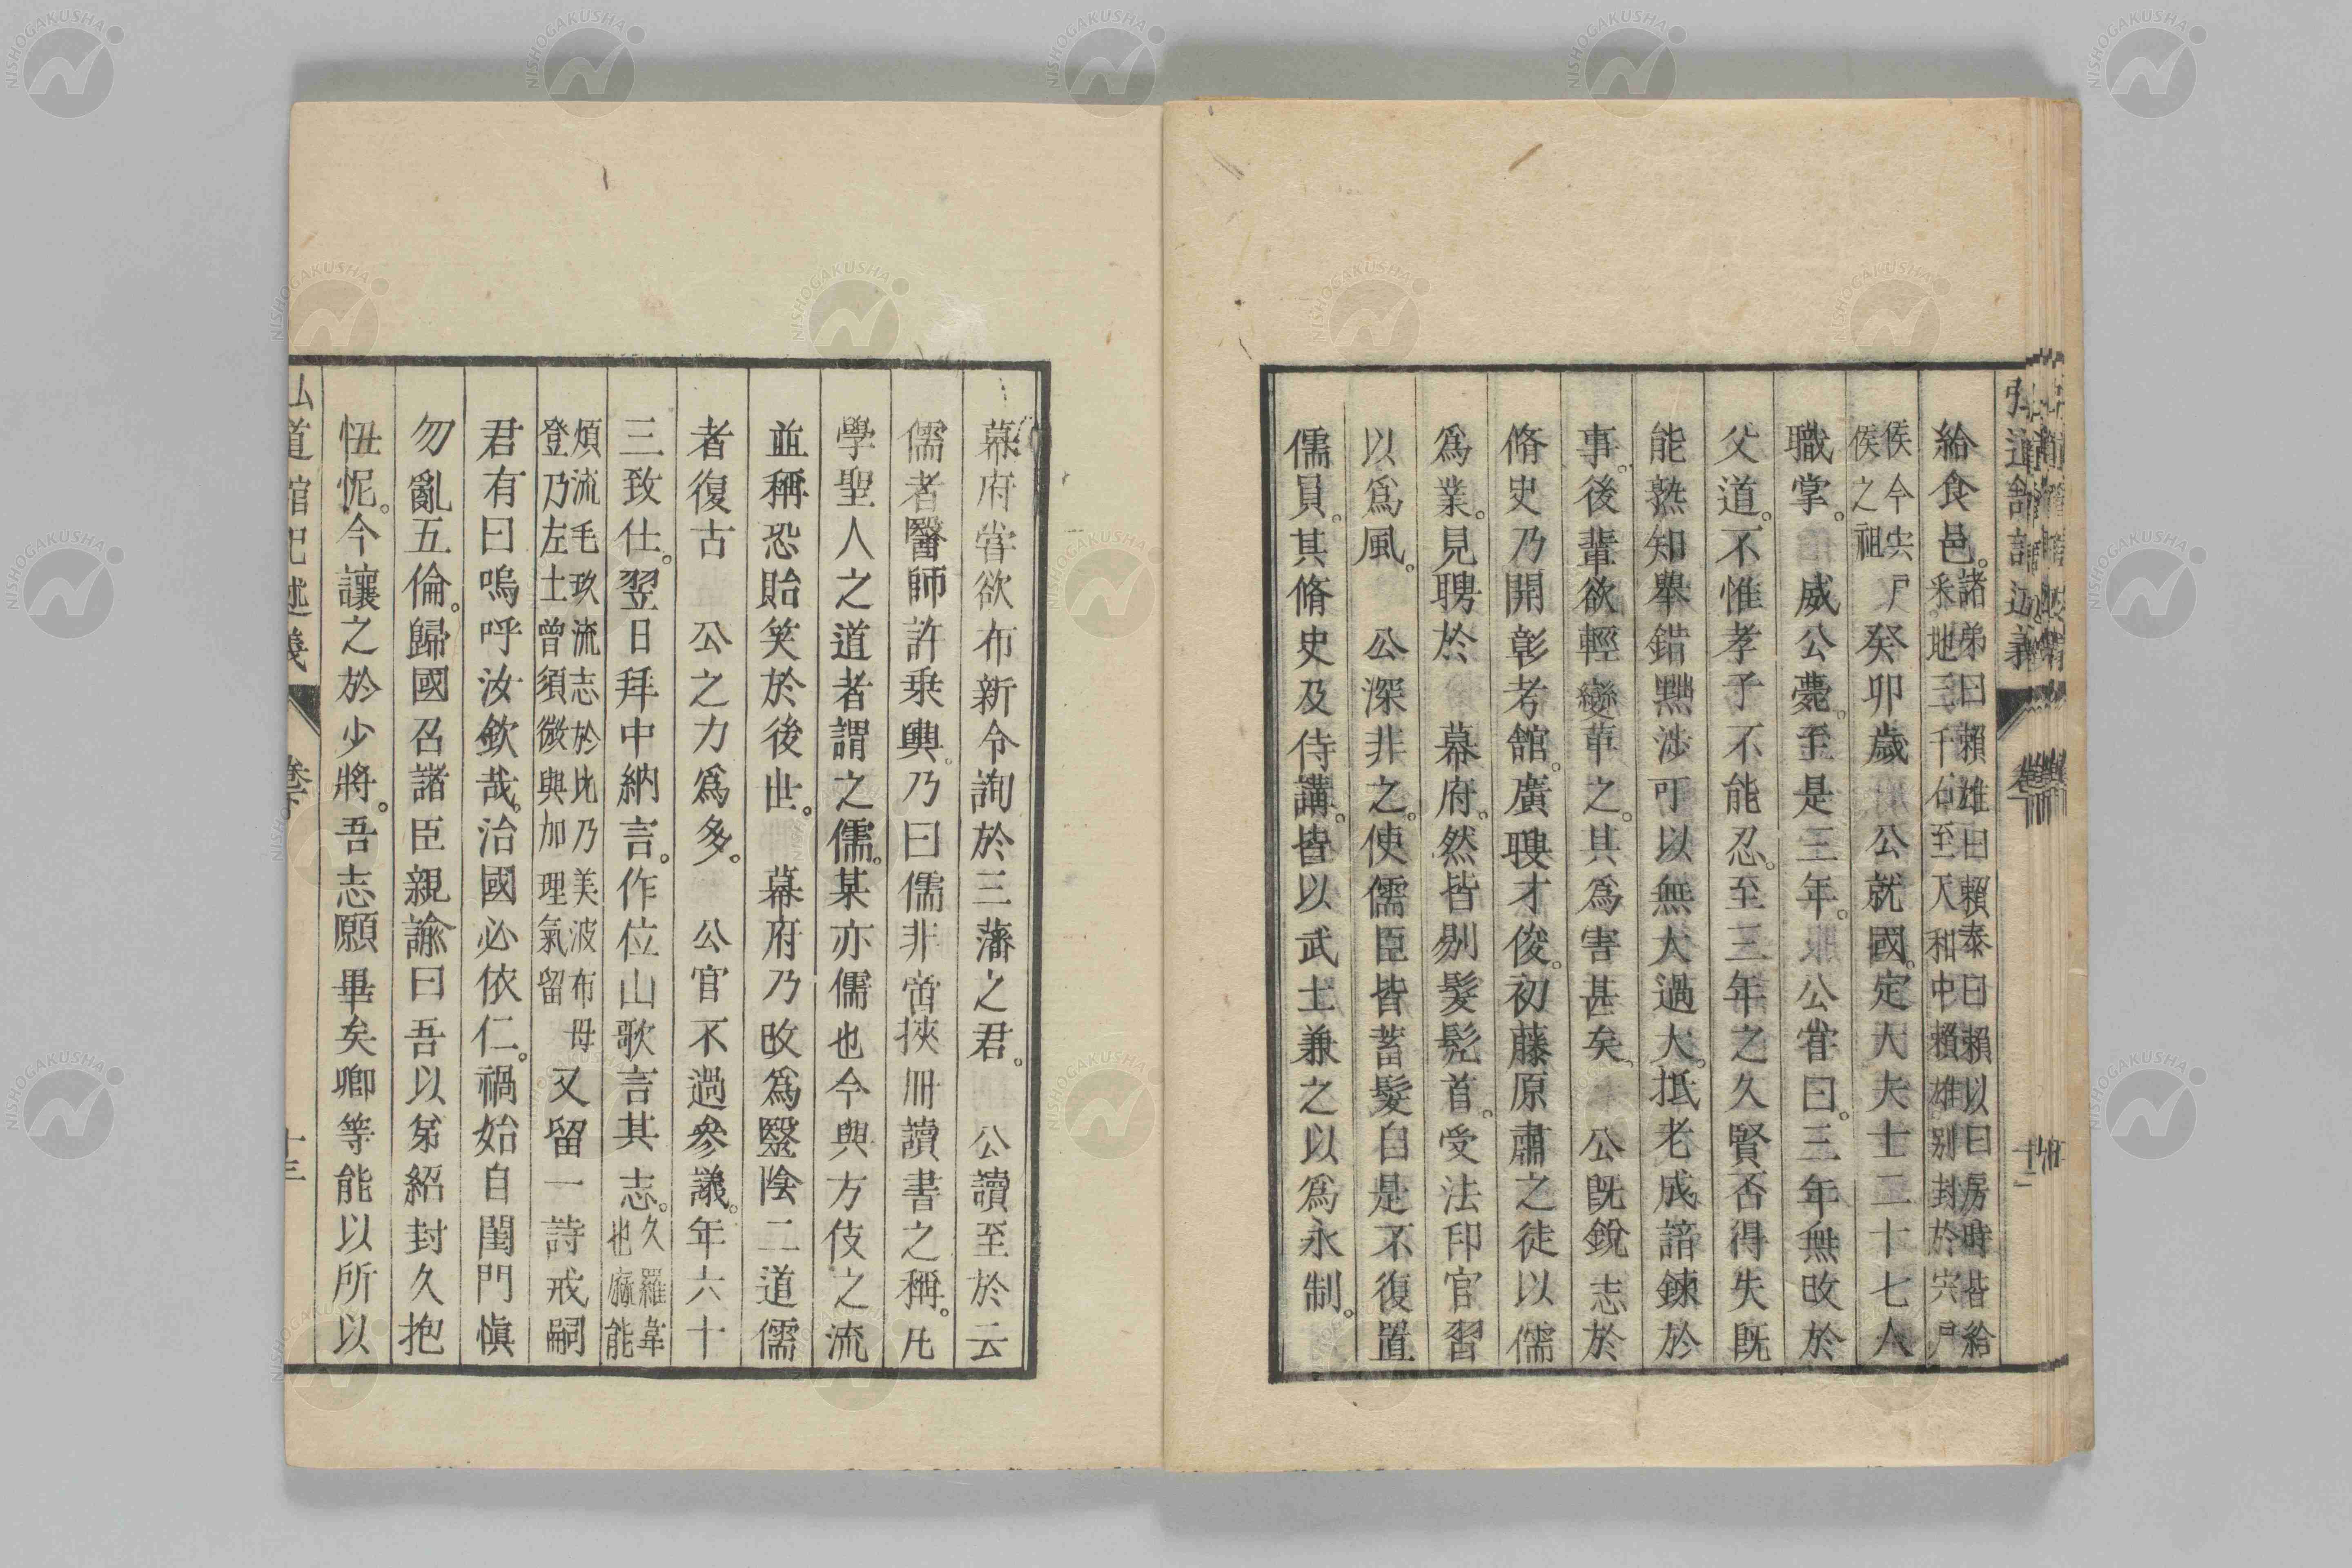 弘道館記述義
卷下
十二
給食邑。諸弟曰賴雄曰賴泰曰賴以曰房時皆給
采地三千石至又和中賴雄別封於宍戸
侯今宍戸
侯之祖癸卯歲 公就國。定大夫士二十七人
職掌。 威公薨。至是三年。 公嘗曰。三年無改於
父道。不惟孝子不能忍。至三年之久賢否得失既
能熟知舉錯黜涉可以無大過大。抵老成諳鍊於
事。後輩欲輕變革之。其爲害甚矣、 公既銳志於
脩史乃開彰考館。廣聘才俊。初藤原肅之徒以儒
爲業。見聘於 幕府。然皆剔髮髡首。受法印官習
以爲風。 公深非之。使儒臣皆蓄髮自是不復置
儒員。其脩史及侍講。皆以武士兼之以爲永制。
幕府嘗欲布新令詢於三藩之君。 公讀至於云
儒者醫師許乘輿。乃曰儒非啻挾冊讀書之稱。凡
學聖人之道者謂之儒。某亦儒也今與方伎之流
並稱恐貽笑於後世。 幕府乃改爲醫陰二道儒
者復古 公之力爲多。 公官不過參議。年六十
三致仕。翌日拜中納言。作位山歌言其志。久羅韋
也麻能
煩流毛玖流志於比乃美波布母
登乃左土曾須微與加理氣留 又留一詩戒嗣
君有曰嗚呼汝欽哉。治國必依仁。禍始自閨門愼
勿亂五倫。歸國召諸臣親諭曰吾以弟紹封久抱
忸怩。今讓之於少將。吾志願畢矣卿等能以所以
弘道館記述義
卷下
十三